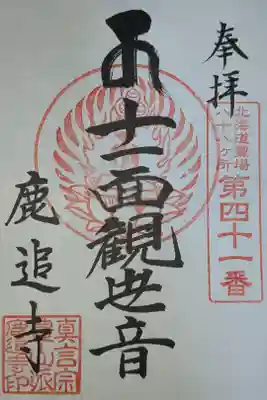 奉拝
北海道霊場
八十八ケ所
第四十一番
十一面観世音
鹿追寺
真言宗